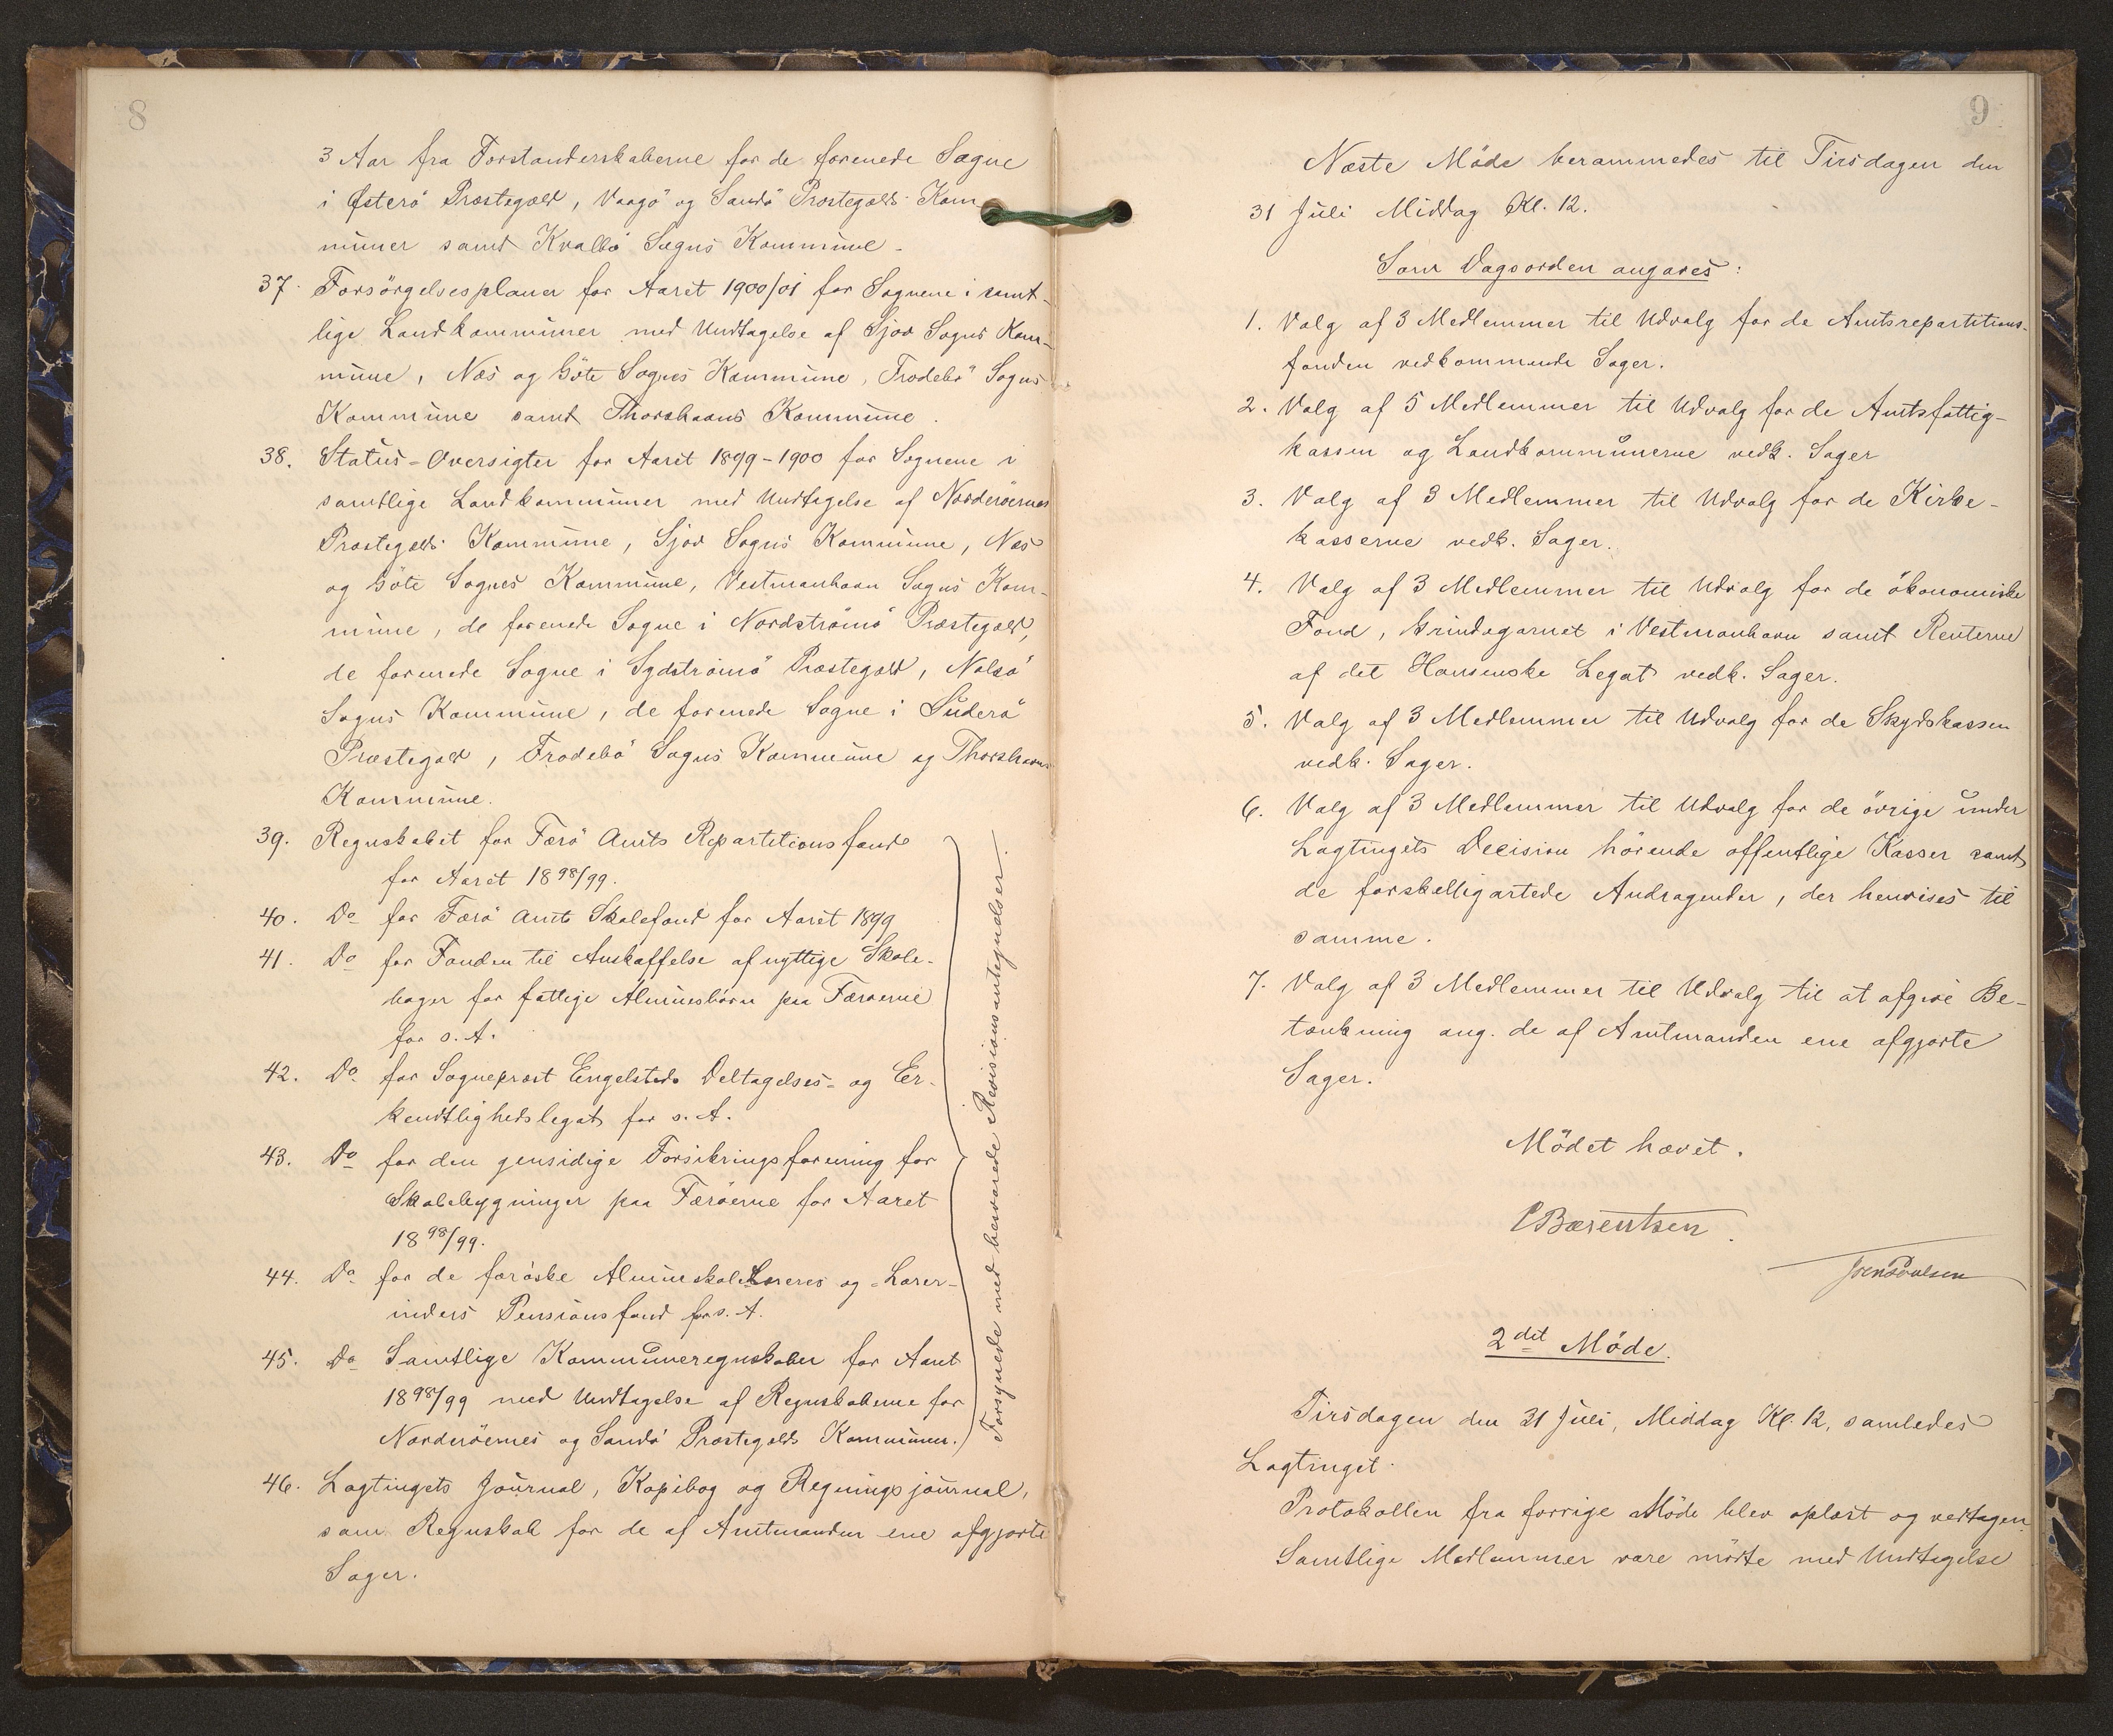 8
3 Aar fra Forstanderskaberne for de forenede Sogne
i Østerö Præstegæld, Vaagö og Sandö Præstegælds Kom-
muner samt Kvalbö Sogns Kommune.
37. Forsörgelsesplaner for Aaret 1900/01 for Sognene i samt-
lige Landkommuner med Undtagelse af Sjov Sogns Kom-
mune, Næs og Göte Sognes Kommune, Frodebö Sogns
Kommune samt Thorshavns Kommune.
38. Status-Oversigter for Aaret 1899-1900 for Sognene i
samtlige Landkommuner med Undtagelse af Norderöernes
Præstegælds Kommune, Sjov Sogns Kommune, Næs
og Göte Sognes Kommune, Vestmanhavn Sogns Kom-
mune, de forenede Sogne i Nordströmö Præstegæld,
de forenede Sogne i Sydströmö Præstegæld, Nolsö
Sogns Kommune, de forenede Sogne i Suderö
Præstegæld, Frodebö Sogns Kommune og Thorshavns
Kommune.
39. Regnskabet for Færö Amts Repartitionsfond
for Aaret 1898/99.
40. Do for Færö Amts Skolefond for Aaret 1899
41. Do for Fonden til Anskaffelse af nyttige Skole-
böger for fattige Almuesbörn paa Færöerne
for s. A.
42. Do for Sognepræst Engelsteds Deltagelses- og Er-
kendtlighedslegat for s. A.
43. Do for den gensidige Forsikringsforening for
Skolebygninger paa Færöerne for Aaret
1898/99.
44. Do for de færöske Almueskolelæreres og -Lærer-
inders Pensionsfond for s. A.
45. Do Samtlige Kommuneregnskaber for Aaret
1898/99 med Undtagelse af Regnskaberne for
Norderöernes og Sandö Præstegælds Kommuner.
Forsynede med besvarede Revisionsantegnelser.
46. Lagtingets Journal, Kopibog og Regningsjournal,
som Regnskab for de af Amtmanden ene afgjorte
Sager.
9
Næste Möde berammedes til Tirsdagen den
31 Juli Middag Kl. 12.
Som Dagsorden angaves:
1. Valg af 3 Medlemmer til Udvalg for de Amtsrepartitions-
fonden vedkommende Sager.
2. Valg af 5 Medlemmer til Udvalg for de Amtsfattig-
kassen og Landkommunerne vedk. Sager
3. Valg af 3 Medlemmer til Udvalg for de Kirke-
kasserne vedk. Sager.
4. Valg af 3 Medlemmer til Udvalg for de ökonomiske
Fond, Grindegarnet i Vestmanhavn samt Renterne
af det Hansenske Legat vedk. Sager.
5. Valg af 3 Medlemmer til Udvalg for de Skydskassen
vedk. Sager.
6. Valg af 3 Medlemmer til Udvalg for de övrige under
Lagtingets Decision hörende offentlige Kasser samt
de forskelligartede Andragender, der henvises til
samme.
7. Valg af 3 Medlemmer til Udvalg til at afgive Be-
tænkning ang. de af Amtmanden ene afgjorte
Sager.
Mödet hævet.
C Bærentsen
Joen Poulsen
2det Möde.
Tirsdagen den 31 Juli, Middag Kl. 12, samledes
Lagtinget.
Protokollen fra forrige Möde blev oplæst og vedtagen.
Samtlige Medlemmer vare mödte med Undtagelse